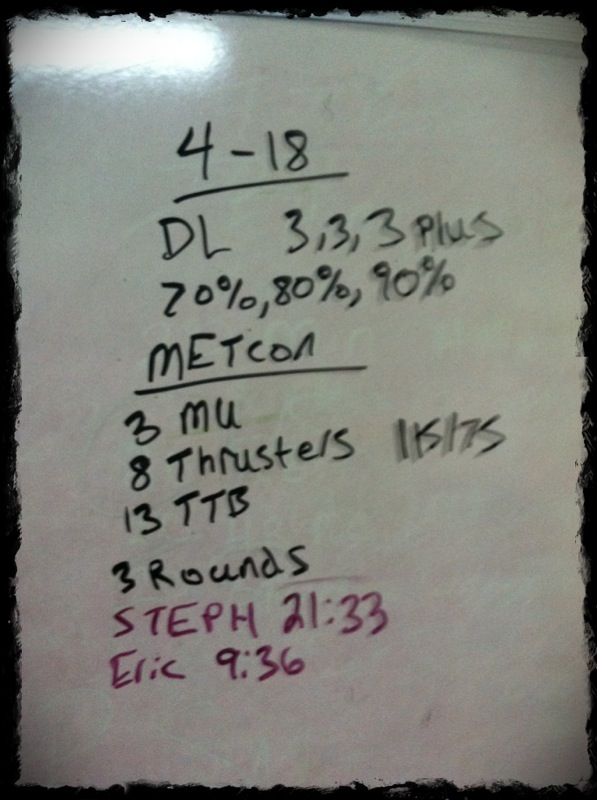 4-18
DL 3,3,3 Plus
70%,80%,90%
METCON
3 MU
8 Thrusters 115/75
13 TTB
3 Rounds
STEPH 21:33
Eric 9:36